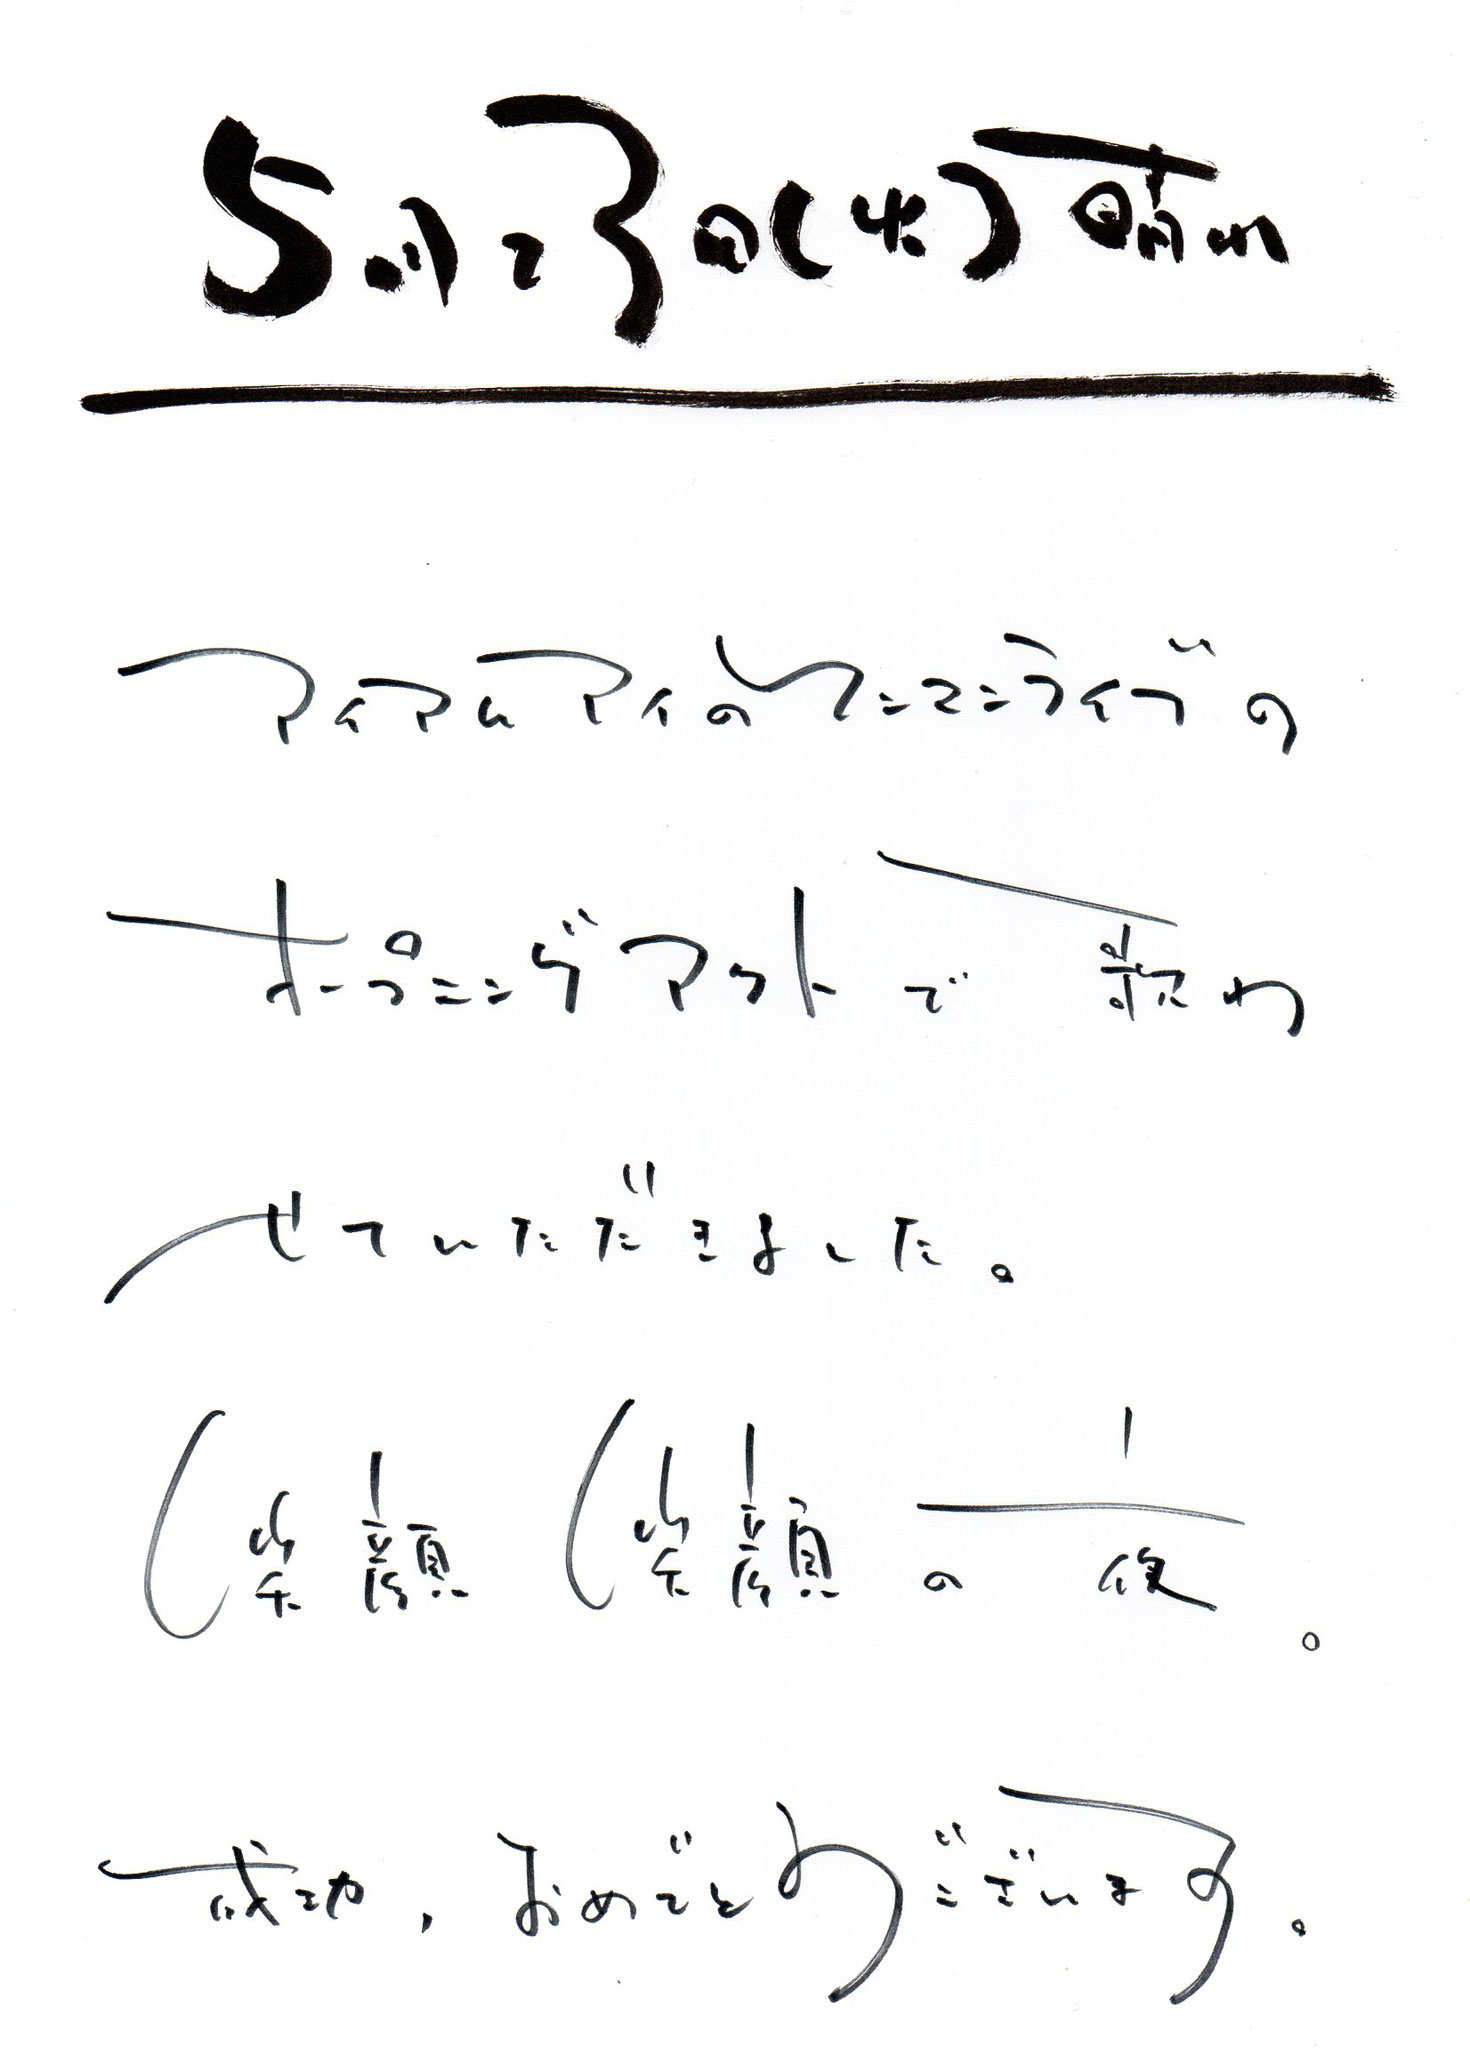 5月23日(火)晴れ
アイアムアイのワンマンライブの
オープニングアクトで歌わ
せていただきました。
楽顔 楽顔の一夜。
成功、おめでとうございます。